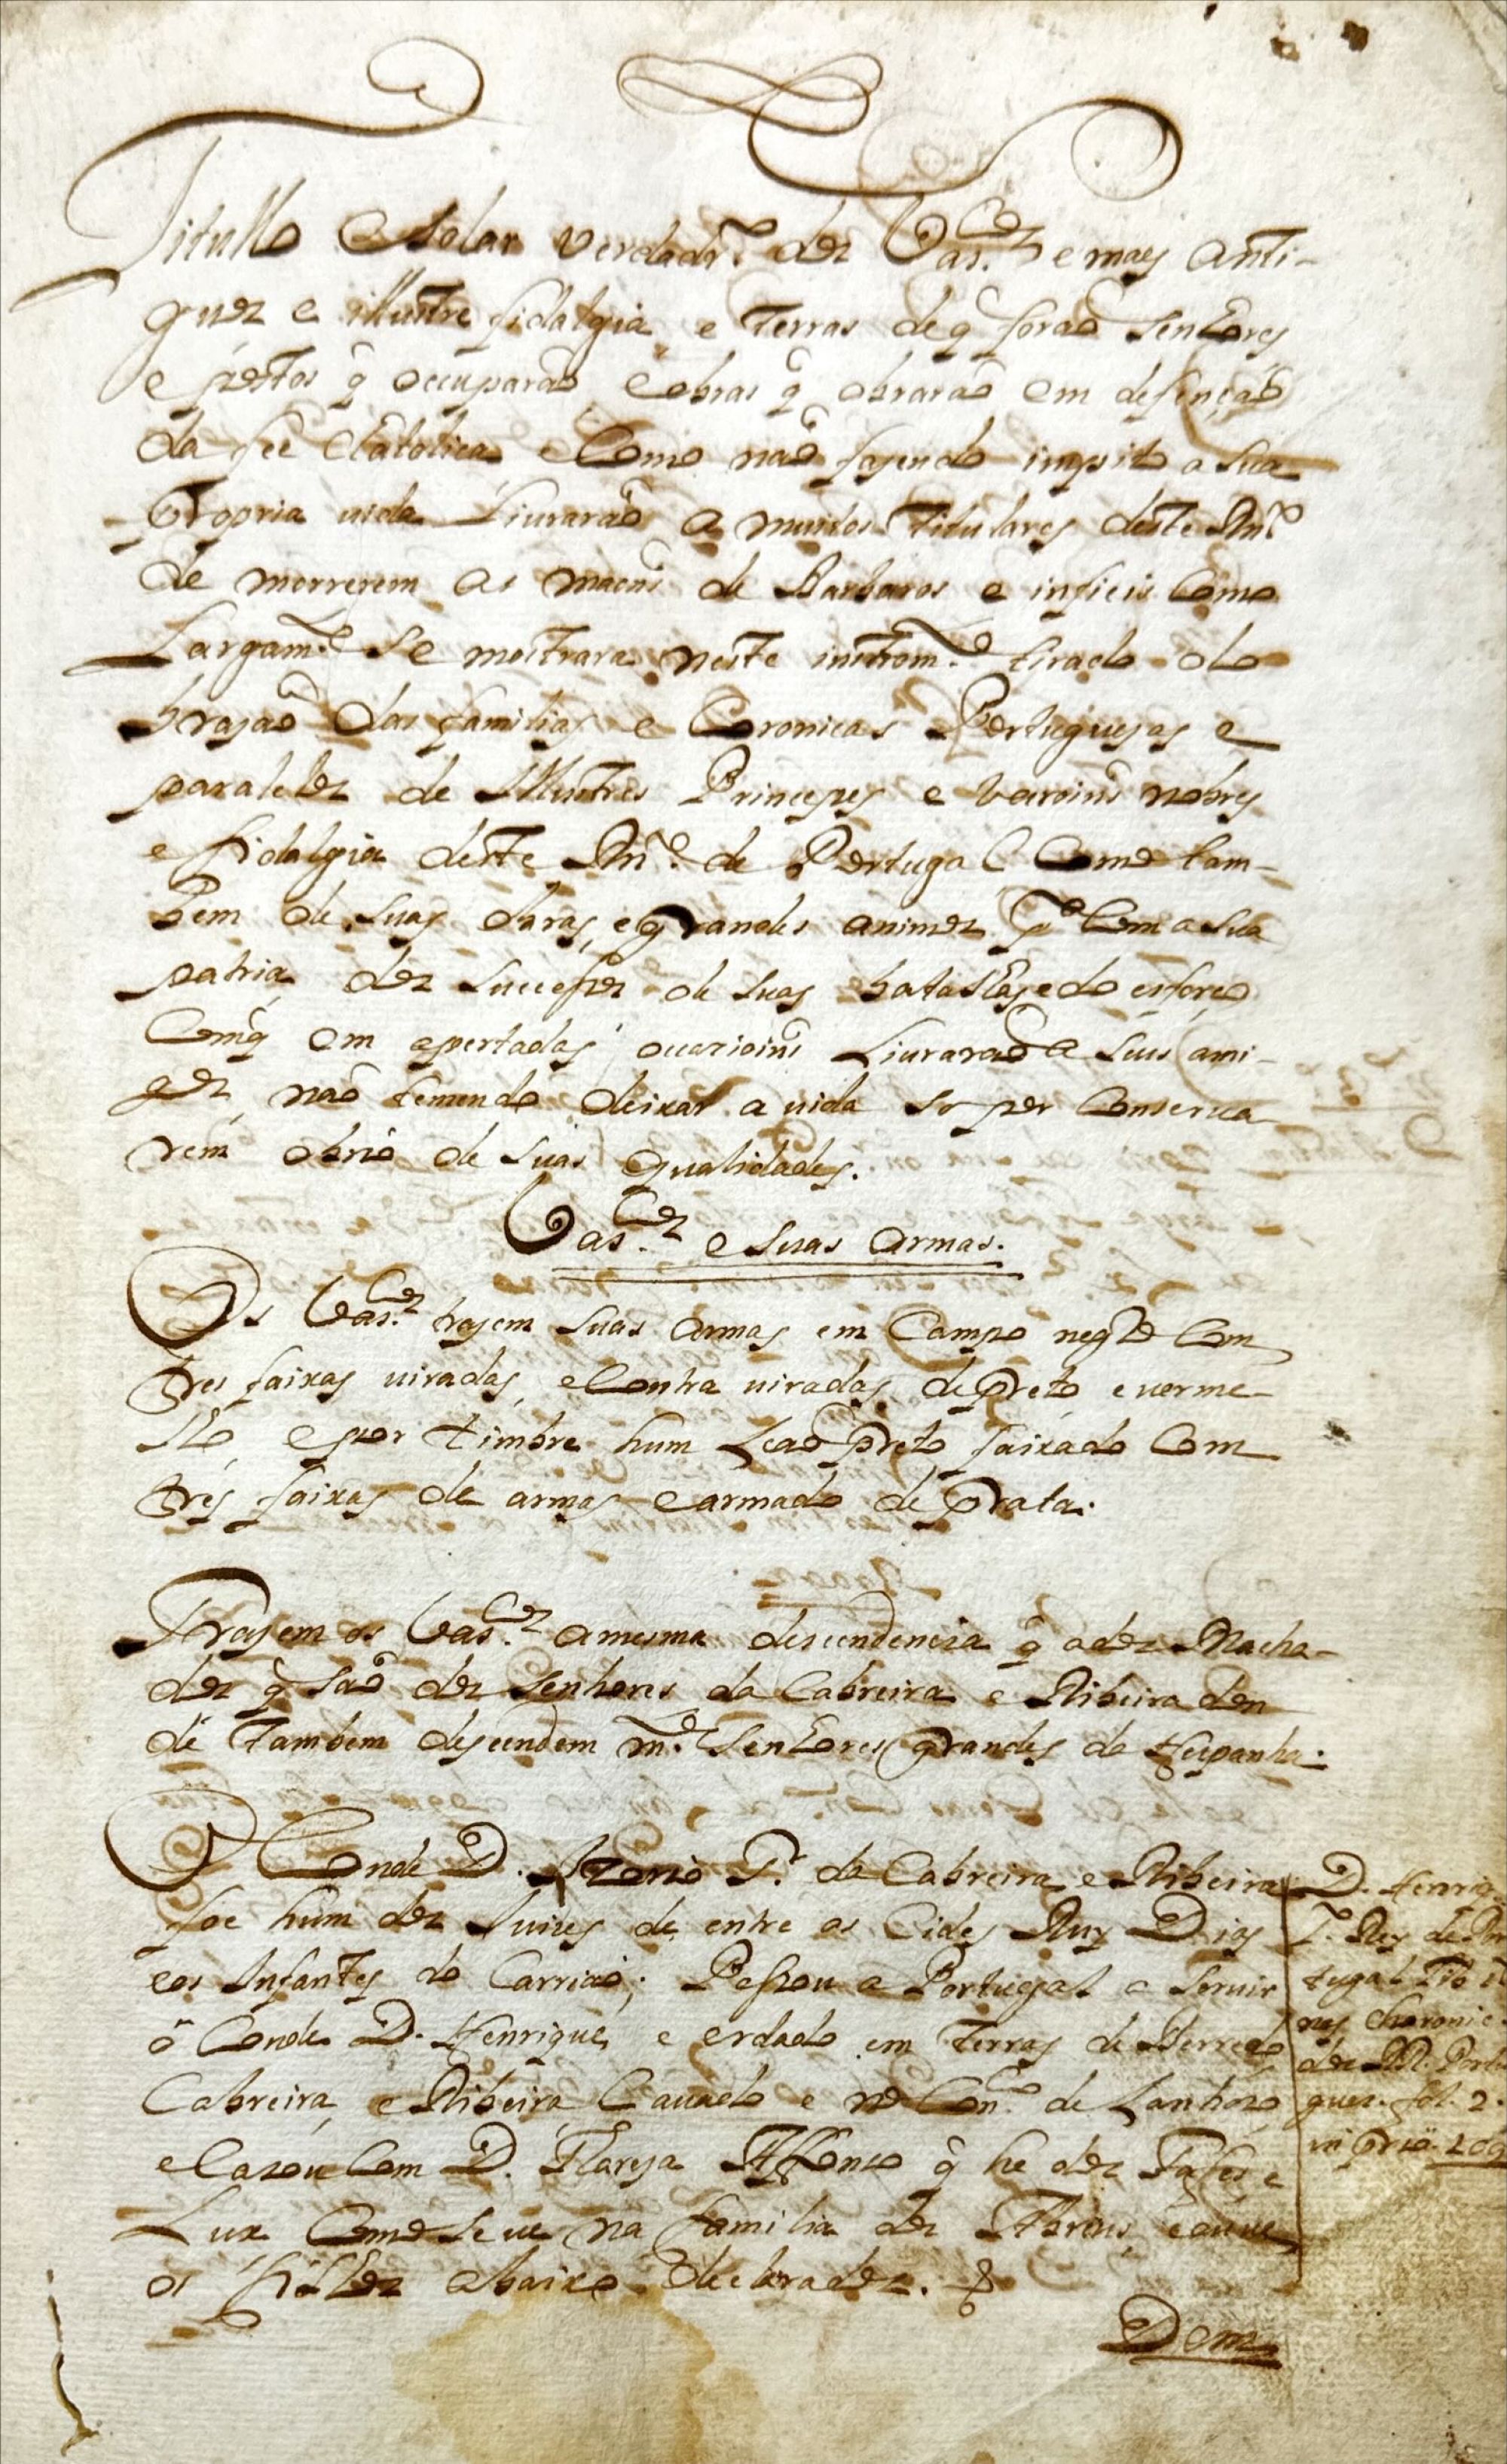 Titullo e solar verdadr.º dos Vas.cos e mais anti-
guos e illustre fidalgia e terras de q̃ forão senhores
e postos q̃ occuparão e obras q̃ obrarão em defenção
da fee Catolica e Como não fazendo a sua
propria uida Liurarão a muitos titulares deste Rn.º
de morrerem as maons de Barbaros e infieis Como
Largam.te se mostrara neste instrom.to tirado do
brazão das familias e Coronicas Portuguezas e
paralelos de Illustres Princepes e varoins nobres
e fidalgia deste Rn.º de Portugal Como tam-
bem de suas obras, e grandes animos p.ª Com a sua
patria dos successos de suas batalhas e do esforço
Com q̃ em apertadas occazioins Liurarão a seus ami-
gos não temendo deixar a uida so por Conserua
rem o brio de suas qualidades.
Vas.cos e suas armas.
Os Vas.cos trazem suas armas em Campo negro Com
tres faixas uiradas, e Contra uiradas de preto e uerme-
lho e por timbre hum Leão preto faixado Com
tres faixas de armas e armado de prata.
Trazem os Vas.cos a mesma descendencia q̃ a dos Macha-
dos q̃ são dos senhores da Cabreira e Ribeira don
de tambem descendem m.tos senhores grandes de Hespanha.
O Conde D. Ozorio S.r da Cabreira e Ribeira
foe hum dos Juizes de entre os Cides Ruy Dias
e os Infantes do Carrião; Passou a Portugal a seruir
o Conde D. Henrique, e erdado em terras de Berredo
Cabreira, e Ribeira Cauado e no Con.co de Lanhozo
e Cazou Com D. Affonso q̃ he dos e
Lux Como se ue na familia dos Abreus, e ouue
os filhos abaixo declarados.
D. Henriq.
1.º Rey de Por
tugal
nas Choronic.
dos RR. Portu
gues. fol. 2.
Dom